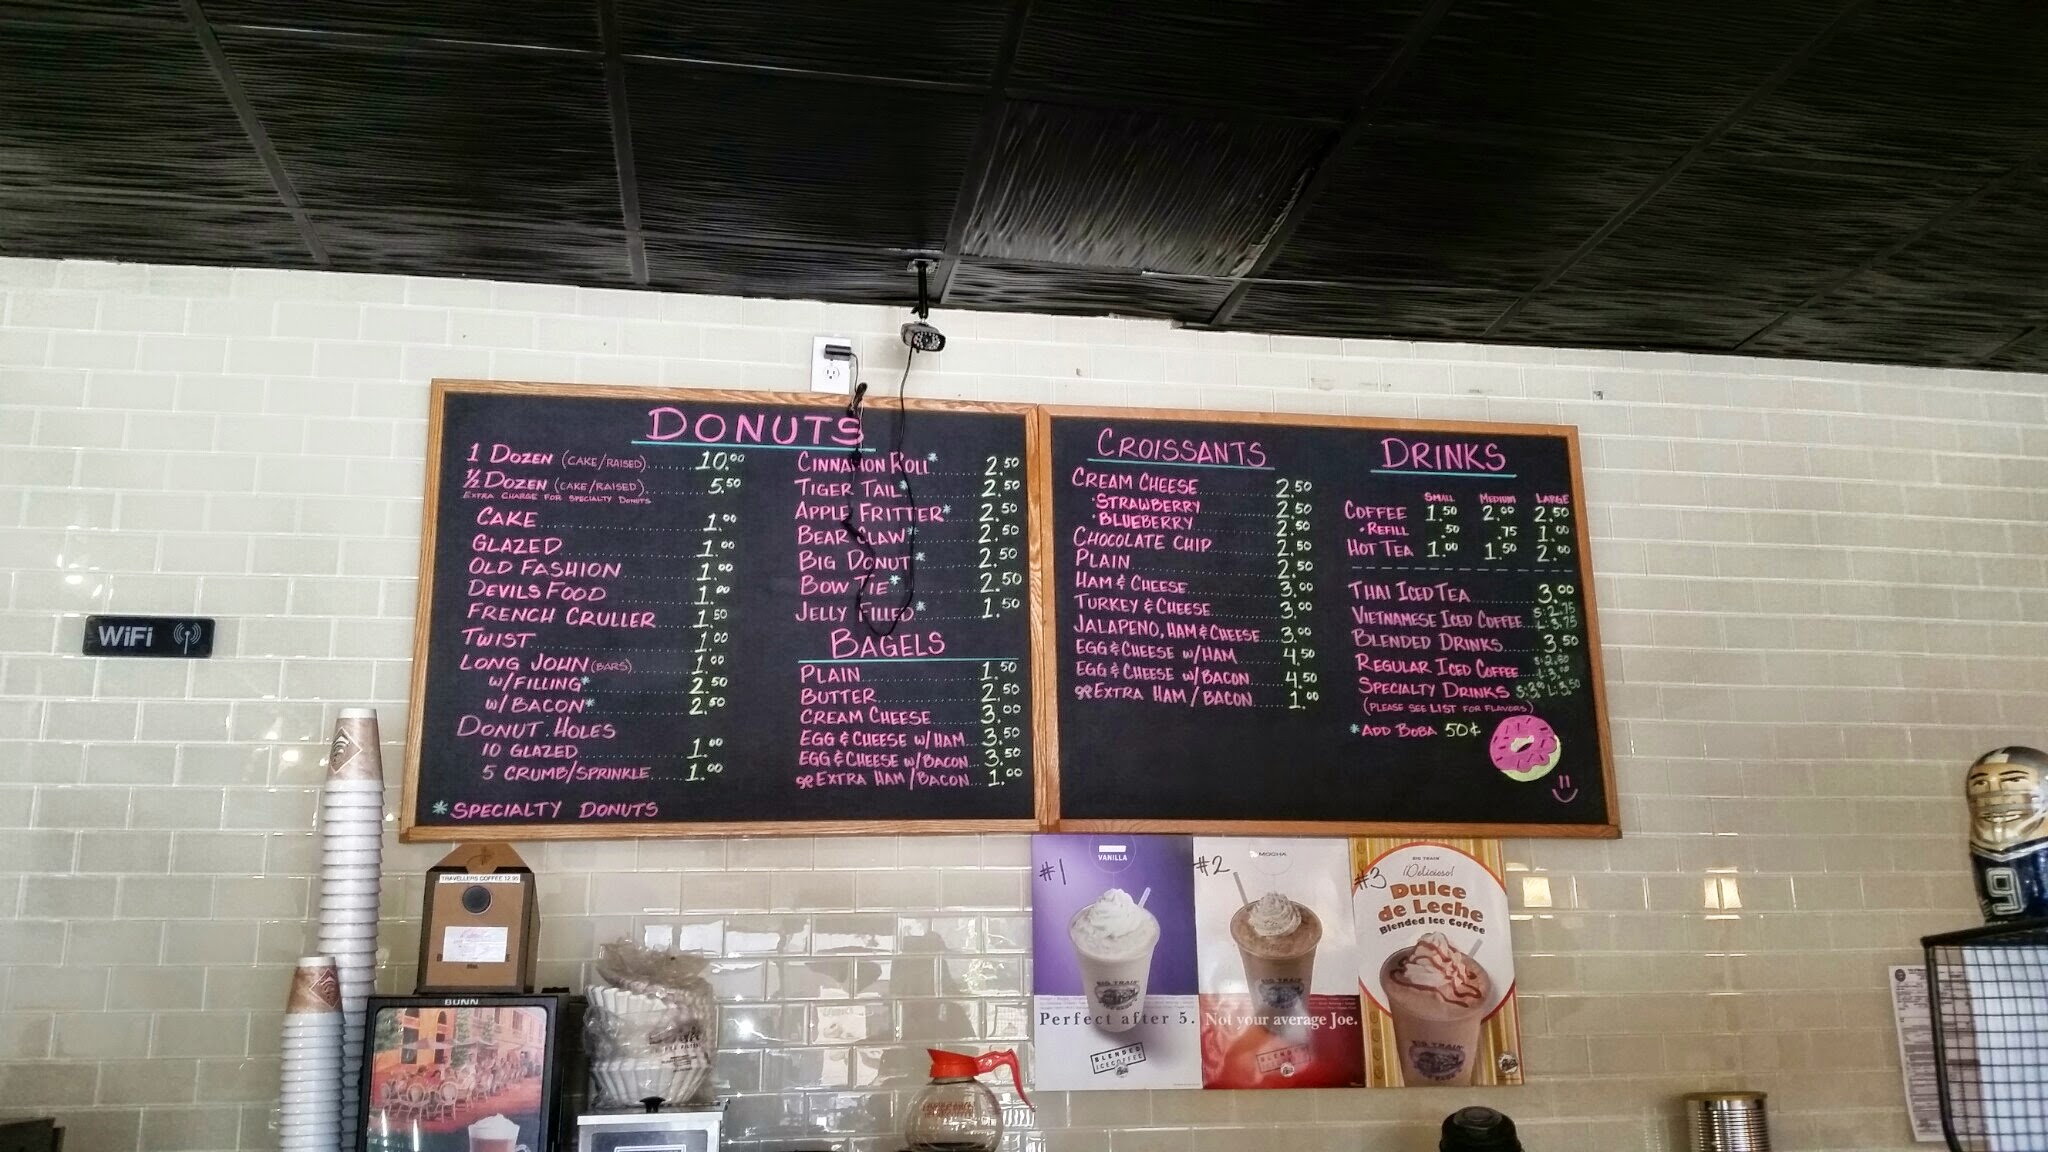 DONUTS
1 DOZEN (CAKE/RAISED) 10.00
½ DOZEN (CAKE/RAISED) 5.50
EXTRA CHARGE FOR SPECIALTY DONUTS
CAKE 1.00
GLAZED 1.00
OLD FASHION 1.00
DEVILS FOOD 1.00
FRENCH CRULLER 1.50
TWIST 1.00
LONG JOHN (BARS) 1.00
W/FILLING* 2.50
W/BACON* 2.50
DONUT HOLES
10 GLAZED 1.00
5 CRUMB/SPRINKLE 1.00
*SPECIALTY DONUTS
CINNAMON ROLL* 2.50
TIGER TAIL* 2.50
APPLE FRITTER* 2.50
BEAR CLAW* 2.50
BIG DONUT* 2.50
BOW TIE* 2.50
JELLY FILLED* 1.50
BAGELS
PLAIN 1.50
BUTTER 2.50
CREAM CHEESE 3.00
EGG & CHEESE W/HAM 3.50
EGG & CHEESE W/BACON 3.50
EXTRA HAM/BACON 1.00
CROISSANTS
CREAM CHEESE 2.50
•STRAWBERRY 2.50
•BLUEBERRY 2.50
CHOCOLATE CHIP 2.50
PLAIN 2.50
HAM & CHEESE 3.00
TURKEY & CHEESE 3.00
JALAPENO, HAM & CHEESE 3.00
EGG & CHEESE W/HAM 4.50
EGG & CHEESE W/BACON 4.50
EXTRA HAM/BACON 1.00
DRINKS
SMALL MEDIUM LARGE
COFFEE 1.50 2.00 2.50
•REFILL .50 .75 1.00
HOT TEA 1.00 1.50 2.00
THAI ICED TEA 3.00
VIETNAMESE ICED COFFEE S:2.75 L:3.75
BLENDED DRINKS 3.50
REGULAR ICED COFFEE S:2.50 L:3.00
SPECIALTY DRINKS S:3.00 L:3.50
(PLEASE SEE LIST FOR FLAVORS)
*ADD BOBA 50¢
WiFi
TRAVELLERS COFFEE 12.95
BUNN
#1
VANILLA
BIG TRAIN
Perfect after 5.
BLENDED
ICE COFFEE
#2
MOCHA
BIG TRAIN
Not your average Joe.
BLENDED
#3
BIG TRAIN
¡Delicioso!
Dulce
de Leche
Blended Ice Coffee
BIG TRAIN
9